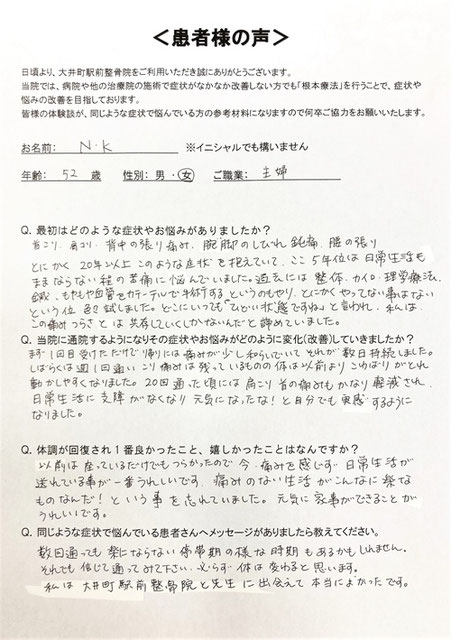 ＜患者様の声＞
日頃より、大井町駅前整骨院をご利用いただき誠にありがとうございます。
当院では、病院や他の治療院の施術で症状がなかなか改善しない方でも「根本療法」を行うことで、症状や
悩みの改善を目指しております。
皆様の体験談が、同じような症状で悩んでいる方の参考材料になりますので何卒ご協力をお願いいたします。
お名前： N・K ※イニシャルでも構いません
年齢： 52 歳 性別：男・女 ご職業： 主婦
Q. 最初はどのような症状やお悩みがありましたか？
首こり、肩こり、背中の張り痛み、腕脚のしびれ鈍痛、腰の張り
とにかく 20年以上 このような症状を抱えていて、ここ5年位は日常生活も
ままならない程の苦痛に悩んでいました。過去には整体、カイロ、理学療法、
鍼、もやもや血管をカテーテルで手術するというのもやり、とにかくやってない事はない
という位色々試しました。どこにいっても「ひどい状態ですね」と言われ、私は
この痛みつらさとは共存していくしかないんだと諦めていました。
Q. 当院に通院するようになりその症状やお悩みがどのように変化（改善）していきましたか？
まず1回目受けただけで帰りには痛みが少し和らいでいてそれが数日持続しました。
しばらくは週1回通い こり痛みは残っているものの体は以前よりこわばりがとれ
動かしやすくなりました。20回通った頃には肩こり首の痛みもかなり軽減され、
日常生活に支障がなくなり 元気になったな！と自分でも実感するように
なりました。
Q. 体調が回復され1番良かったこと、嬉しかったことはなんですか？
以前は座っているだけでもつらかったので 今、痛みを感じず日常生活が
送れている事が一番うれしいです。痛みのない生活がこんなに楽な
ものなんだ！という事を忘れていました。元気に家事ができることが
うれしいです。
Q. 同じような症状で悩んでいる患者さんへメッセージがありましたら教えてください。
数回通っても楽にならない停滞期の様な時期もあるかもしれません。
それでも信じて通ってみて下さい。必らず体は変わると思います。
私は大井町駅前整骨院と先生に出会えて本当によかったです。